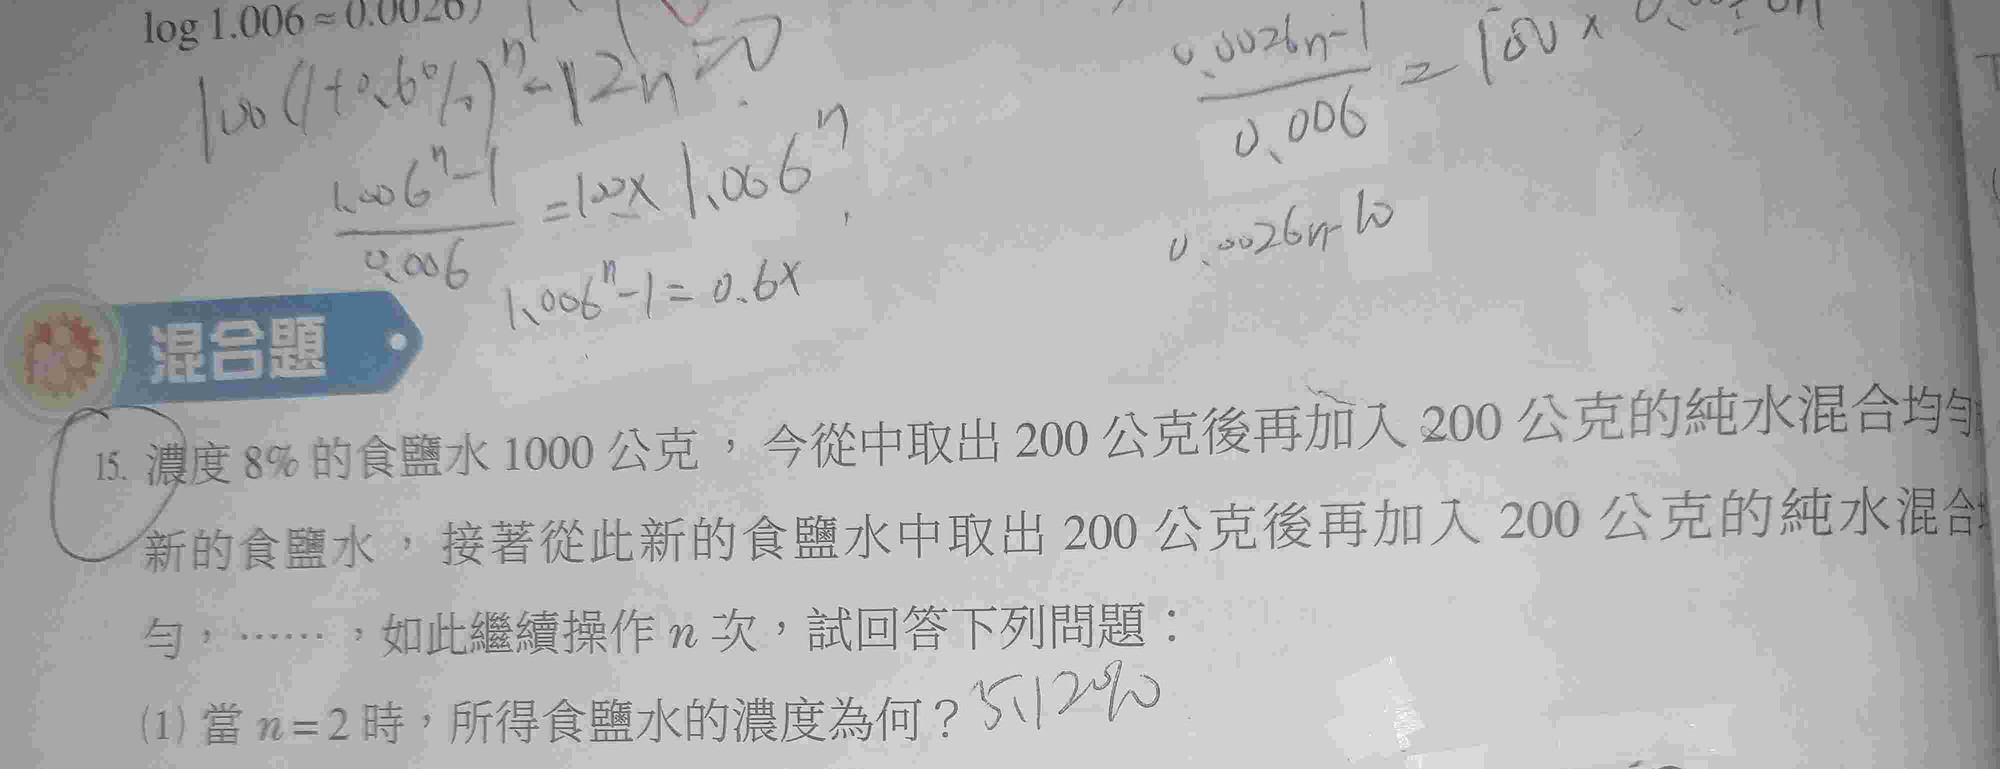 log 1.006 ≈ 0.0026)
100(1+0.6%)^n - 12n = 0
0.0026n-1 / 0.006 =
1.006^n-1 / 0.006 = 100x 1.006^n
0.0026n-10
1.006^n-1 = 0.6x
混合題
15. 濃度 8% 的食鹽水 1000 公克,今從中取出 200 公克後再加入 200 公克的純水混合均勻
新的食鹽水,接著從此新的食鹽水中取出 200 公克後再加入 200 公克的純水混合
勻,……,如此繼續操作 n 次,試回答下列問題:
(1) 當 n = 2 時,所得食鹽水的濃度為何? 5.12%